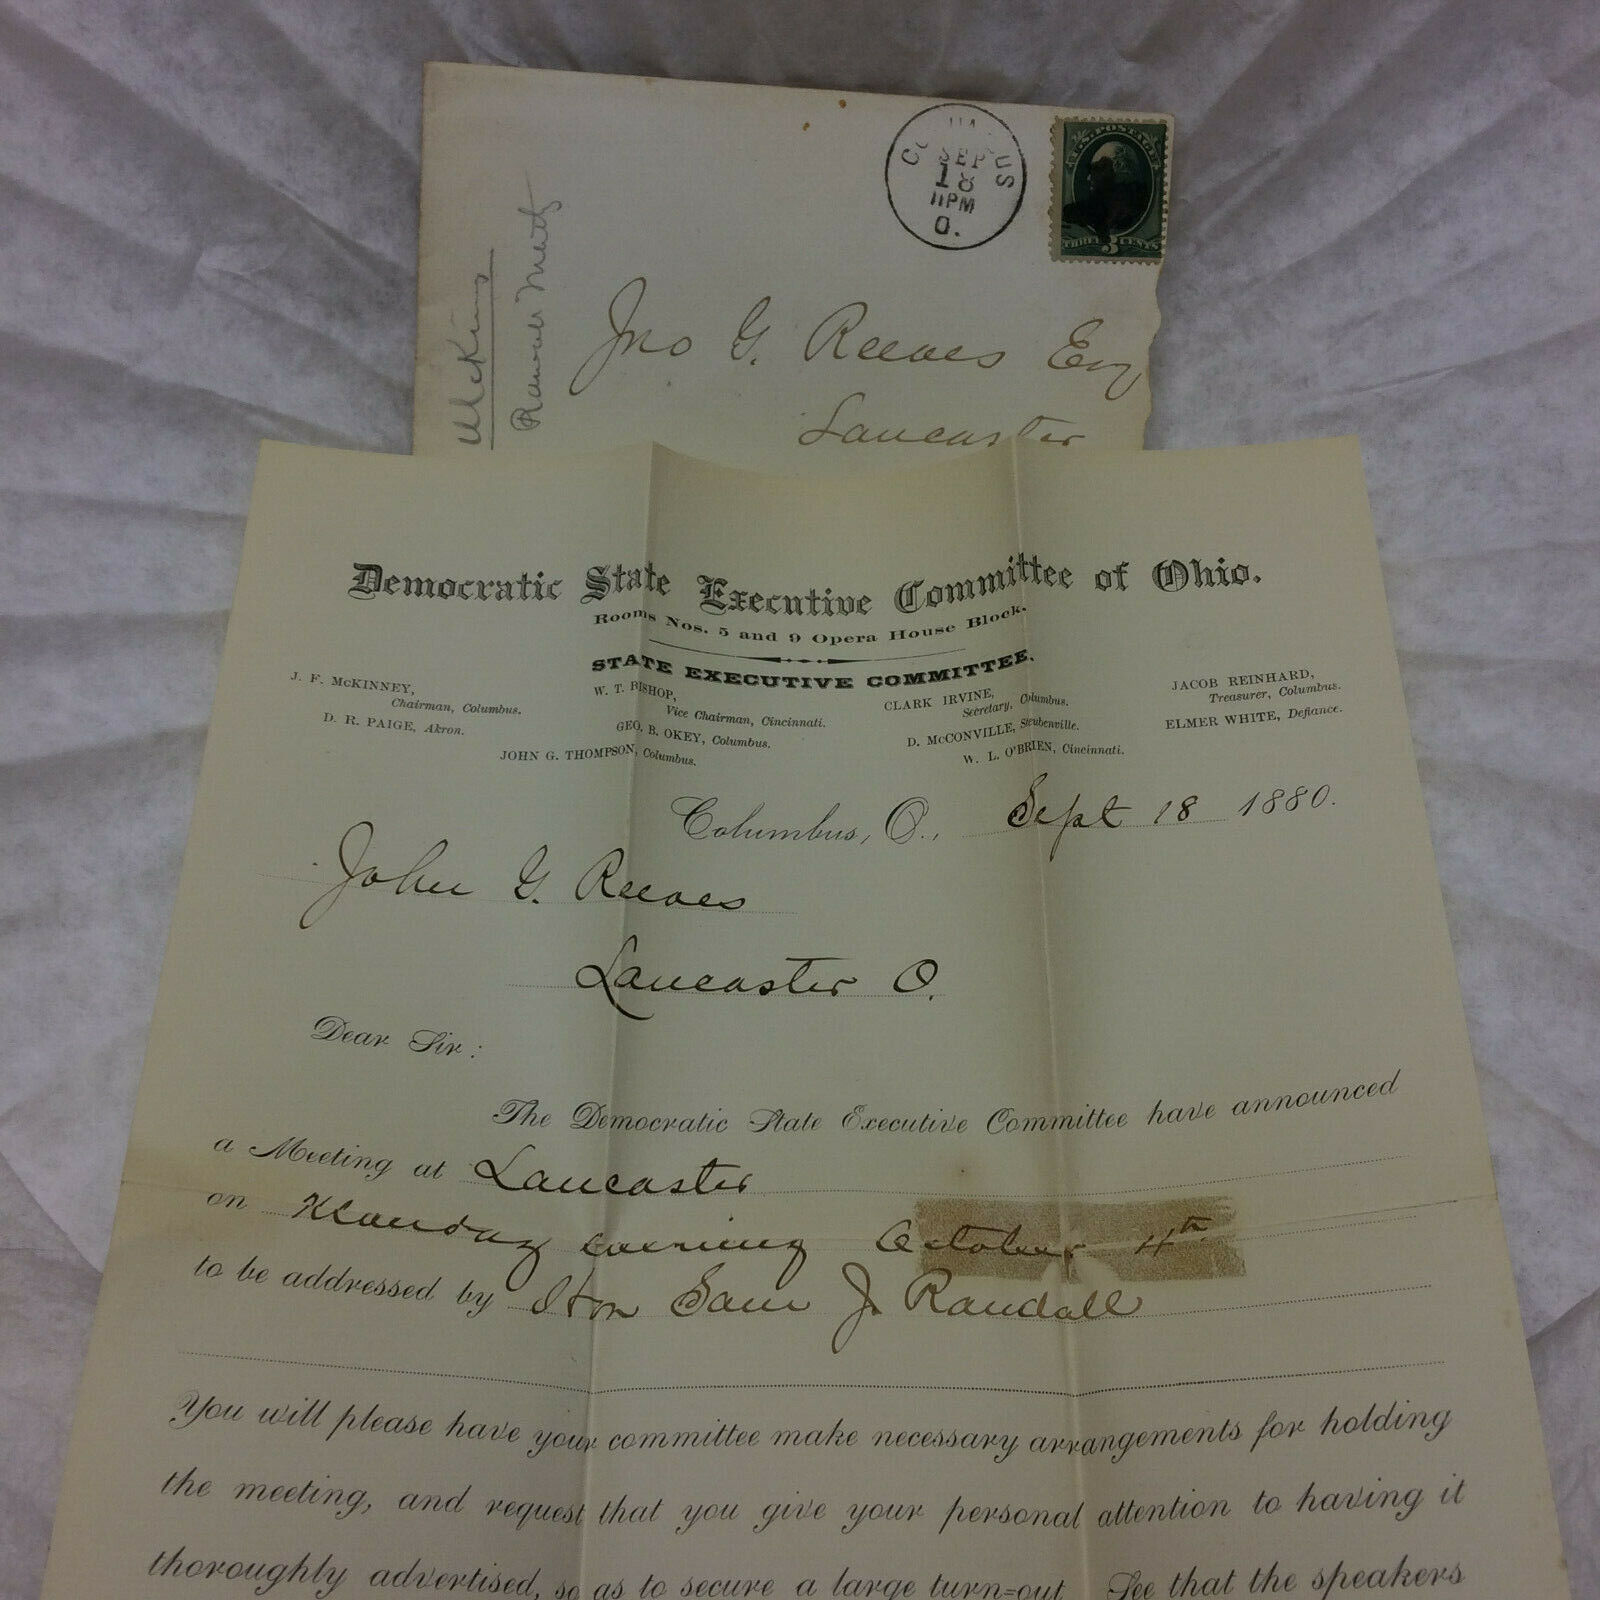 SEP
18
11PM
O.
U.S. POSTAGE
THREE 3 CENTS
McKinney
Jno G. Reeves Esq
Lancaster
Democratic State Executive Committee of Ohio.
Rooms Nos. 5 and 9 Opera House Block.
STATE EXECUTIVE COMMITTEE.
J. F. McKINNEY,
Chairman, Columbus.
D. R. PAIGE, Akron.
W. T. BISHOP,
Vice Chairman, Cincinnati.
GEO. B. OKEY, Columbus.
JOHN G. THOMPSON, Columbus.
CLARK IRVINE,
Secretary, Columbus.
D. McCONVILLE, Steubenville.
W. L. O'BRIEN, Cincinnati.
JACOB REINHARD,
Treasurer, Columbus.
ELMER WHITE, Defiance.
Columbus, O., Sept 18 1880.
John G. Reeves
Lancaster O.
Dear Sir:
The Democratic State Executive Committee have announced
a Meeting at Lancaster
on Monday evening October 4th
to be addressed by Hon Sam J. Randall
You will please have your committee make necessary arrangements for holding
the meeting, and request that you give your personal attention to having it
thoroughly advertised, so as to secure a large turn=out. See that the speakers